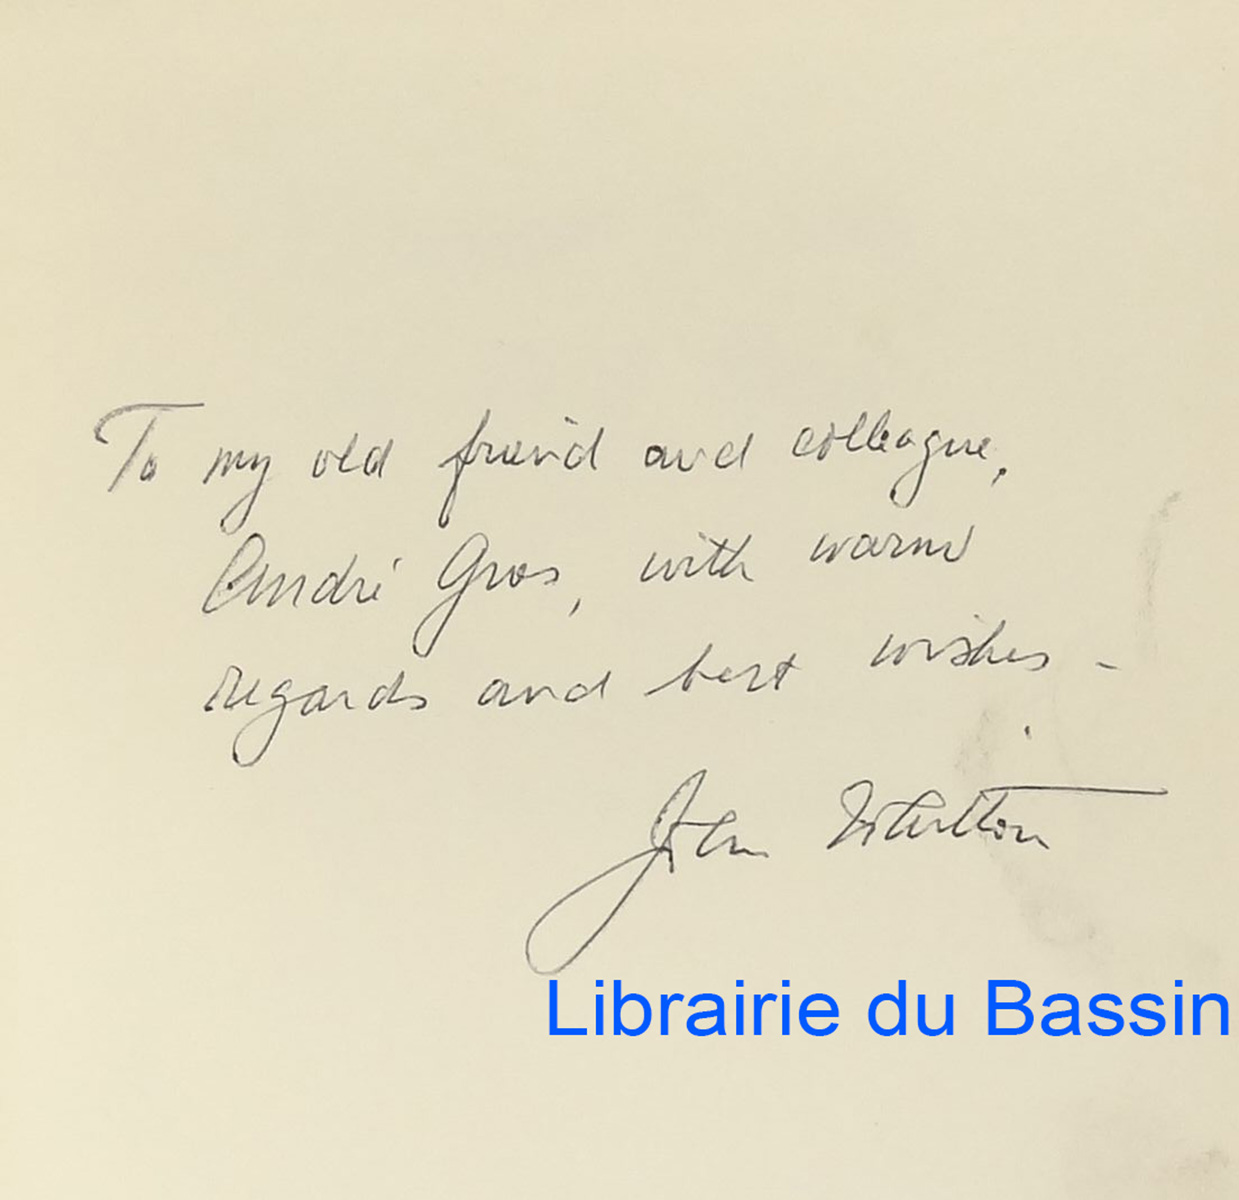 To my old friend and colleague,
André Gros, with warm
regards and best wishes -
John
Librairie du Bassin